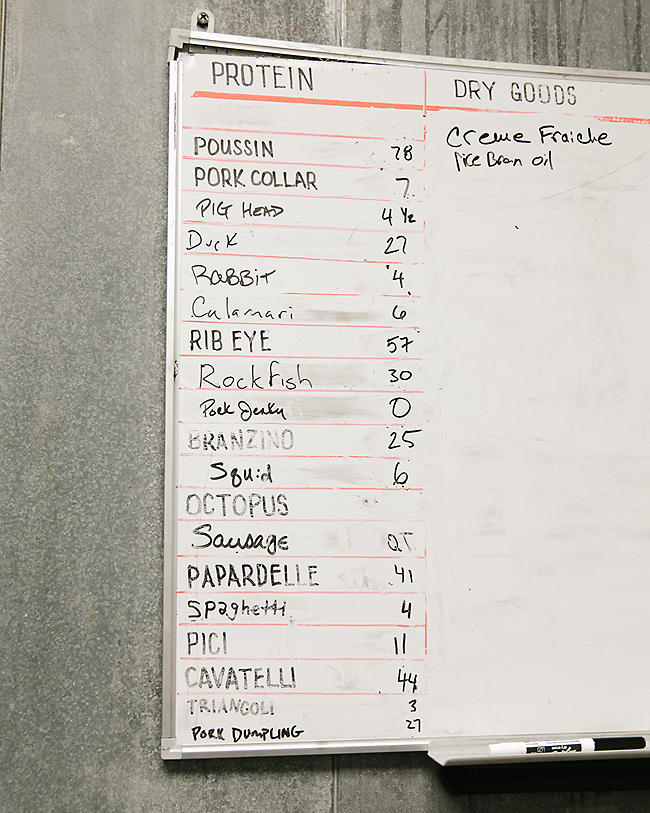 PROTEIN
DRY GOODS
Creme Fraiche
Rice Bran oil
POUSSIN 78
PORK COLLAR 7
PIG HEAD 4 1/2
Duck 27
RaBBiT 4
Calamari 6
RIB EYE 57
Rockfish 30
Pork Jerky 0
BRANZINO 25
Squid 6
OCTOPUS
Sausage QT
PAPARDELLE 41
SPaghetti 4
PICI 11
CAVATELLI 44
TRIANGOLI 3
PORK DUMPLING 27